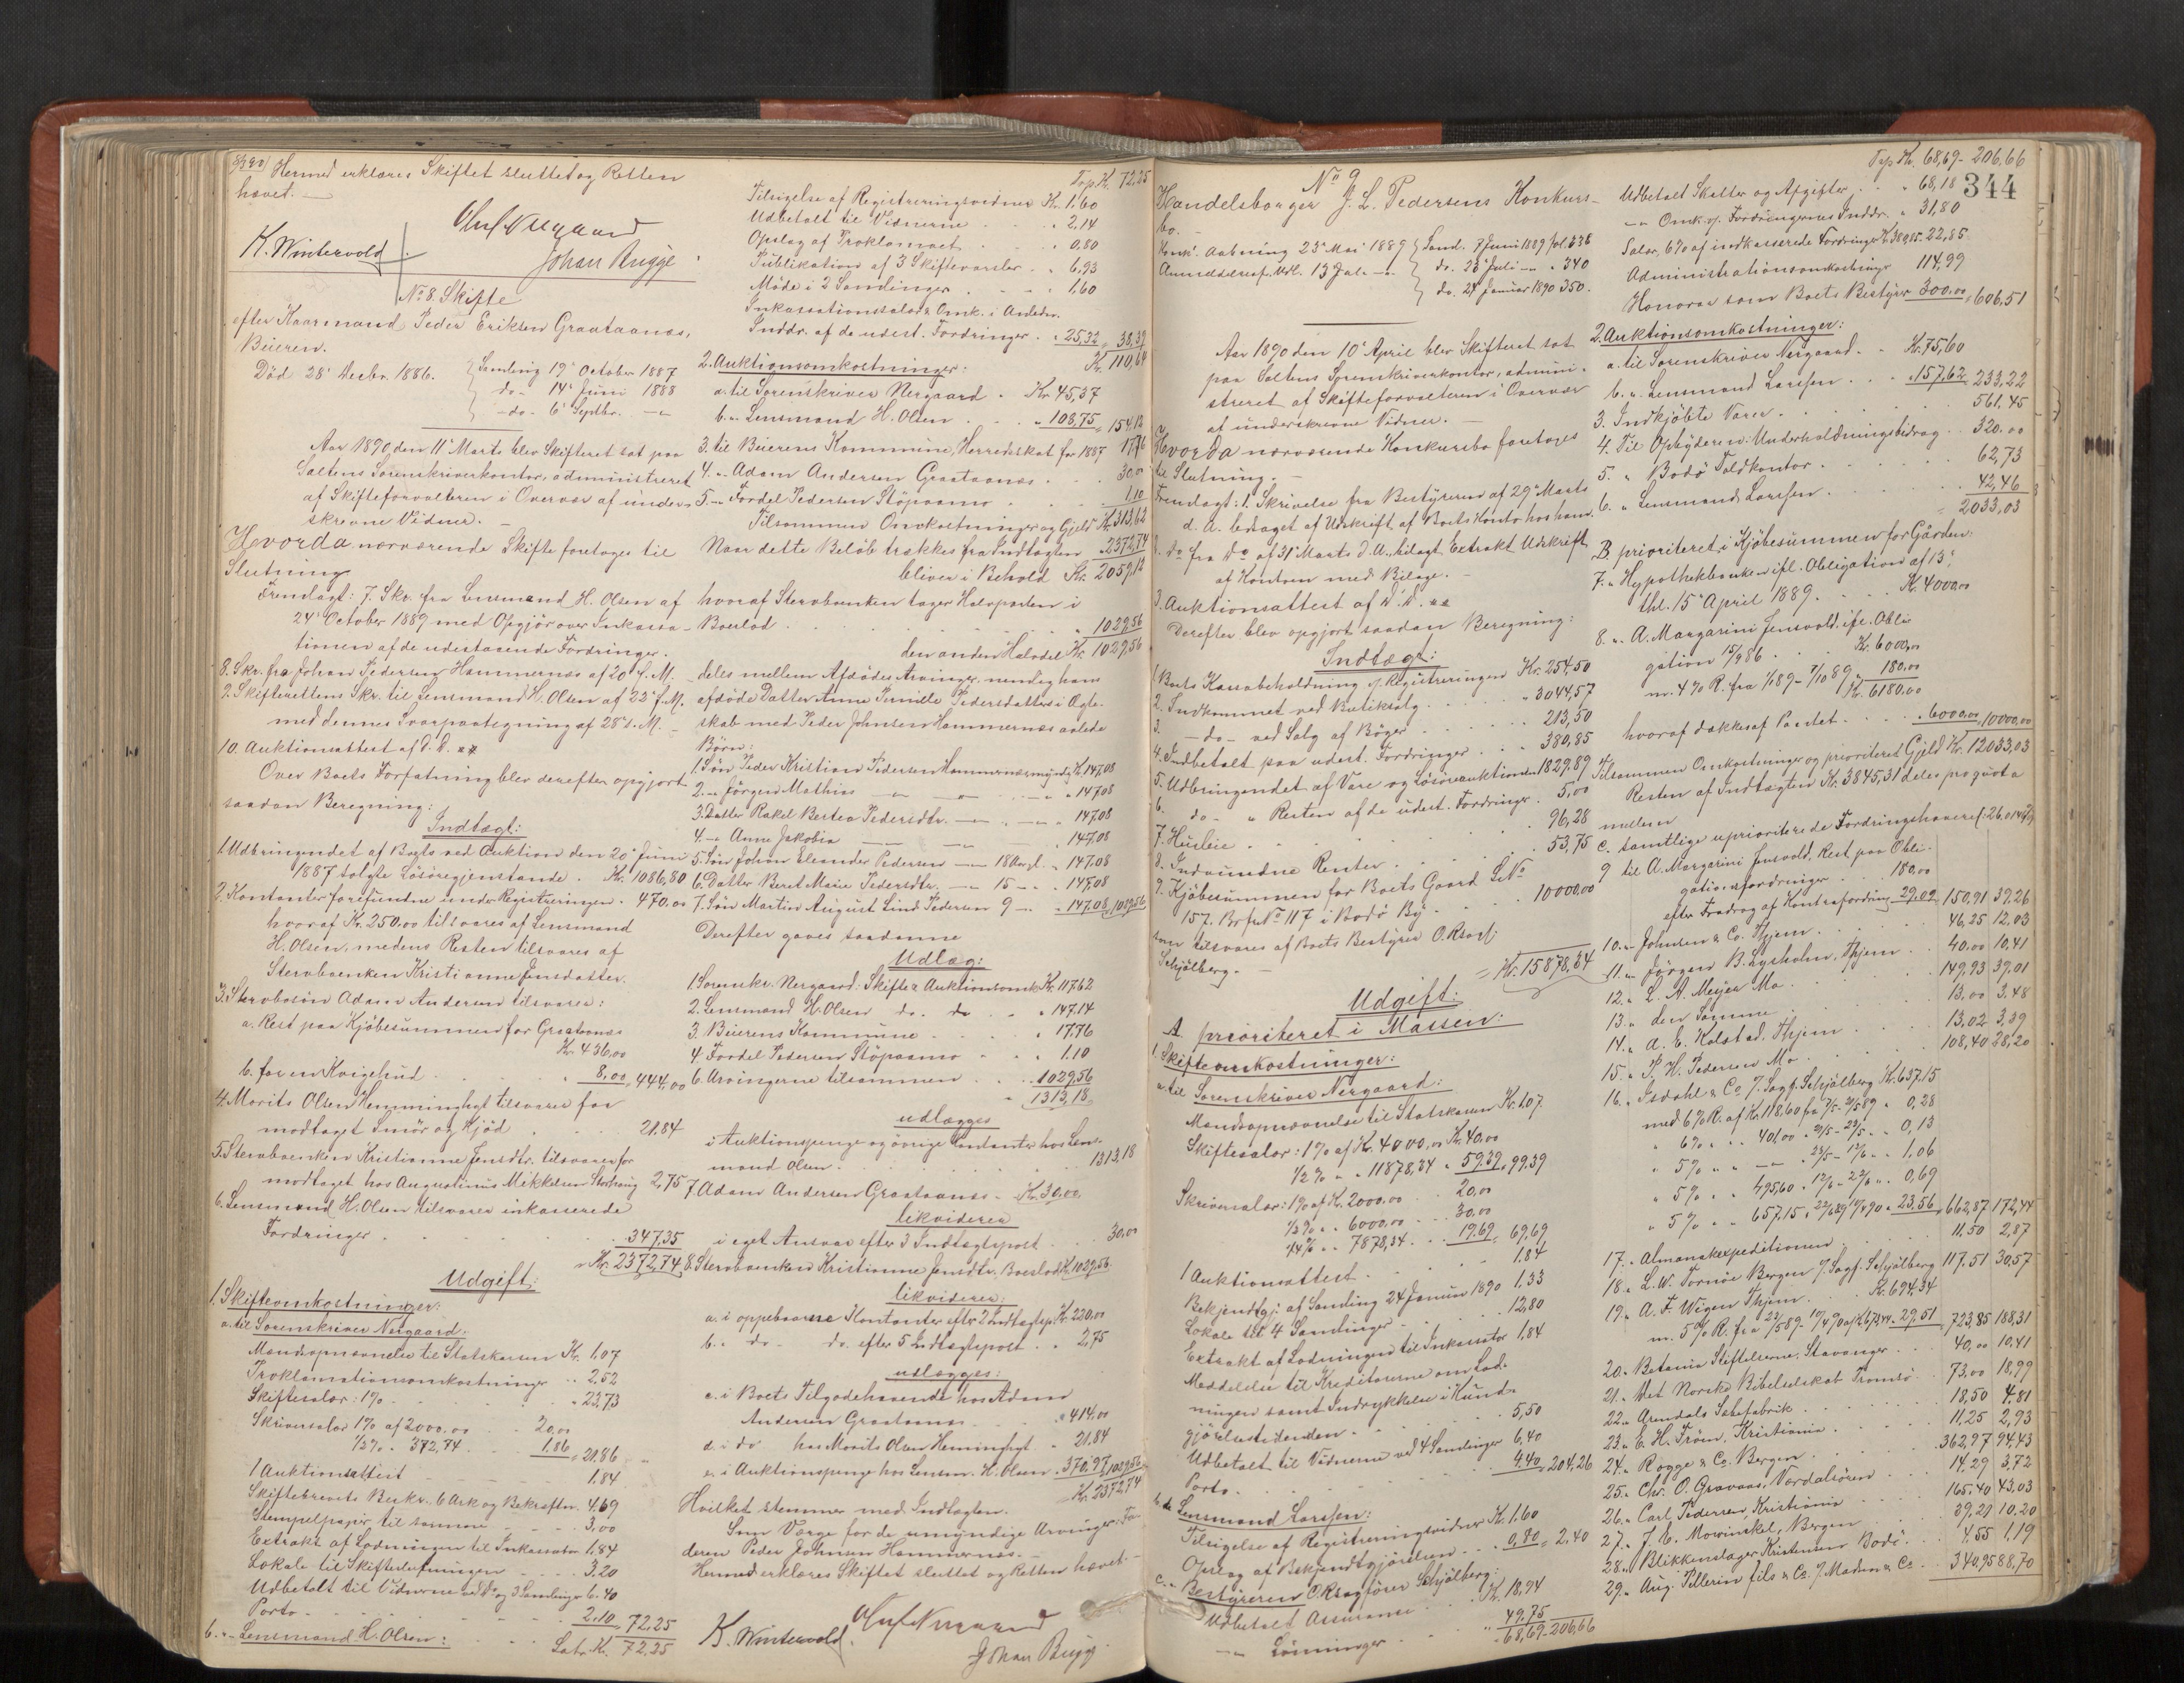 Hermed erklæres Skiftet sluttet og Retten
hævet. —
Oluf Nergaard
K. Wintervold
Johan Bugge
No 8. Skifte
efter Kaarmand Peder Eriksen Graataanæs,
Beieren.
Död 28' Decbr. 1886.
Samling 19' October 1887
do - 14' Juni 1888
- do - 6' Septbr. - "
Aar 1890, den 11' Marts blev Skifteret sat paa
Saltens Sorenskriverkontor, administreret
af Skifteforvalteren i Overvær af under-
skrevne Vidner. —
Hvorda nærværende Skifte foretoges til
Slutning
Fremlagt: 7. Skr. fra Lensmand H. Olsen af
24' October 1889 med Opgjör over Inkassa-
tionen af de udestaaende Fordringer.
8. Skr. fra Johan Pedersen Hammernæs af 20' f. M. -
9. Skifterettens Skr. til Lensmand H. Olsen af 22' f. M.
med dennes Svarpaategning af 28' s. M. -
10. Auktionsattest af d. D.
Over Boets Forfatning blev derefter opgjort
saadan Beregning:
Indtægt:
1. Udbringendet af Boets ved Auktion den 20' Juni
1887 solgte Lösöregjenstande . Kr. 1086,80
2. Kontanter forefundne under Registreringen . 470.00
hvoraf Kr. 250.00 tilsvares af Lensmand
H. Olsen, medens Resten tilsvares af
Stervboenken Kristianne Jensdatter.
3. Stervbosön Adam Andersen tilsvarer:
a. Rest paa Kjöbesummen for Graataanæs
Kr. 436,00
b. for en Kvigehud . . 8,00 = 444,00
4. Morits Olsen Hemminghyt tilsvarer for
modtaget Smör og Kjöd . . . 21.84
5. Stervboenken Kristianne Jensdtr. tilsvarer for
modtaget hos Augustinus Mikkelsen Storhaug 2,75
6. Lensmand H. Olsen tilsvarer inkasserede
Fordringer . . . 347,35
Kr. 2372,74
Udgift:
1. Skifteomkostninger:
a. til Sorenskriver Nergaard:
Mandsopnævnelse til Statskassen Kr. 1.07
Proklamationsomkostninger " 2.52
Skiftesalær: 1% . . " 23,73
Skriversalær 1% af 2000.00 20,00
1/2% " 372,74 1,86 = 21.86
1 Auktionsattest . . 1.84
Skiftebrevets Beskr. 6 Ark og Bekræftn. 4.69
Stempelpapir til samme . . 3,00
Extrakt af Lodningen til Inkassator 1,84
Lokale til Skifteslutningen . . 3.20
Udbetalt til Vidnerne ved Do og 3 Samlinger 6.40
Porto . . . 2.10 72.25
b. " Lensmand H. Olsen: . . Latr. Kr. 72.25
Trsp. Kr. 72,25
Tilsigelse af Registreringsvidner Kr. 1.60
Udbetalt til Vidnerne . . " 2,14
Opslag af Proklamaet . . " 0,80
Publikation af 3 Skiftevarsler . " 6,93
Möde i 2 Samlinger . . 1,60
Inkassationssalær & Omk. i Anledn.
Inddr. af de udest. Fordringer . " 25,32 = 38,39
Kr. 110,64
2. Auktionsomkostninger:
a. til Sorenskriver Nergaard . Kr. 45,37
b. " Lensmand H. Olsen . . " 108,75 = 154,12
3. til Beierens Kommune, Herredsskat for 1887 17,76
4. " Adam Andersen Graataanæs . . 30,00
5. " Fordel Pedersen Stöpaamo . . 1,10
Tilsammen Omkostninger og Gjeld Kr. 313,62
Naar dette Belöb trækkes fra Indtægten . 2372,74
bliver i Behold Kr. 2059,12
hvoraf Stervboenken tager Halvparten i
Boeslod . . . 1029,56
den anden Halvdel Kr. 1029,56
deles mellem Afdödes Arvinger, nemlig hans
afdöde Datter Anne Pernille Pedersdatters i Ægte-
skab med Peder Johnsen Hammernæs avlede
Börn:
1. Sön Peder Kristian Pedersen Hammernæs myndig Kr. 147,08
2. " Jörgen Mathias — " — " 147,08
3. Datter Rakel Bertea Pedersdtr. — " — 147,08
4. — Anne Jakobia — " 147,08
5. Sön Johan Eleander Pedersen — 18 Aar gl. . 147,08
6. Datter Beret Marie Pedersdtr. — 15 — . 147,08
7. Sön Martin August Lind Pedersen 9 — . 147.08 1029,56
Derefter gaves saadanne
Udlæg:
1. Sorenskr. Nergaard: Skifte & Auktionsomk. Kr. 117,62
2. Lensmand H. Olsen do. do . " 147.14
3. Beierens Kommune . . " 17,76
4. Fordel Pedersen Stöpaamo . " 1.10
6. Arvingerne tilsammen . . 1029,56
1313,18
udlægges
i Auktionspenge og övrige Kontanter hos Lens-
mand Olsen . . . 1313,18
7. Adam Andersen Graataanæs . Kr. 30,00
likviderer
i eget Ansvar efter 3 Indtægtspost . 30,00
8. Stervboenken Kristianne Jensdtr. Boeslod Kr. 1029,56
likviderer:
a. i oppebaarne Kontanter efter 2 Indtægtsp. Kr. 220,00
b. " do - do. efter 5 Indtægtspost . . 2,75
udlægges:
c. i Boets Tilgodehavende hos Adam
Andersen Graataanæs . . " 414,00
d. i do hos Morits Olsen Hemminghyt . " 21,84
e. i Auktionspenge hos Lensm. H. Olsen . 370,97 1029,56
Kr. 2372,74
Hvilket stemmer med Indtægten.
Som Værge for de umyndige Arvinger: Fa-
deren Peder Johnsen Hammernæs. —
Hermed erklæres Skiftet sluttet og Retten hævet. —
K. Wintervold.
Oluf Nergaard
Johan Bugge
344
No 9
Handelsborger J. L. Pedersens Konkurs-
bo. -
Konk. Aabning 23' Mai 1889
Saml. 7' Juni 1889 fol. 338
do. 23' Juli - " " 340
do. 24' Januar 1890 350.
Aar 1890 den 10' April blev Skifteret sat
paa Saltens Sorenskriverkontor, admini-
streret af Skifteforvalteren i Overvær
af underskrevne Vidner. —
Hvorda nærværende Konkursbo foretoges
til Slutning. —
Fremlagt: 1. Skrivelse fra Bestyreren af 29' Marts
d. A. ledsaget af Udskrift af Boets Konto hos ham.
2. do fra Do af 31' Marts d. A. bilagt Extrakt Udskrift
af Kontoen med Bilage. —
3. Auktionsattest af d. D.
Derefter blev opgjort saadan Beregning:
Indtægt:
1. Boets Kassabeholdning v. Registreringen Kr. 254,50
2. Indkommet ved Butiksalg . . " 3044,57
3. — do — ved Salg af Böger . . 213,50
4. Indbetalt paa udest. Fordringer . . 380,85
5. Udbringendet af Vare og Lösöreauktionen 1829,89
6. do — " Resten af de udest. Fordringer . 5,00
7. Husleie . . . 96,28
8. Indvundne Renter . . . 53,75
9. Kjöbesummen for Boets Gaard L No
157. Brfr. No 117 i Bodö By . . 10000,00
som tilsvares af Boets Bestyrer O.Rsagf.
Schjölberg. —
= Kr. 15878,34
Udgift:
A. prioriteret i Massen:
1. Skifteomkostninger:
a. til Sorenskriver Nergaard:
Mandsopnævnelse til Statskassen Kr. 1.07
Skiftesalær: 1% af Kr. 4000,00 Kr. 40.00
1/2% " " 11878,34 " 59.39 = 99.39
Skriversalær: 1% af Kr. 2000.00 . . 20,00
1/2% " " 6000,00 . . 30,00
1/4% " " 7878,34 . . 19,69 = 69,69
1 Auktionsattest . . . 1.84
Bekjendtgj. af Samling 24 Januar 1890 1.33
Lokale til 4 Samlinger . . 12,80
Extrakt af Lodningen til Inkassator 1,84
Meddelelse til Kreditorerne om Lod-
ningen samt Indrykkelse i Kund-
gjörelsestidenden . . . 5,50
Udbetalt til Vidnerne ved 4 Samlinger 6,40
Porto . . . 4.40 = 204,26
b. til Lensmand Larssen:
Tilsigelse af Registreringsvidner Kr. 1.60
Opslag af Bekjendtgjörelsen . . . 0,80 = 2,40
c. " Bestyreren O.Rsagförer Schjölberg:
Udbetalt Assurance . . Kr. 18,94
— " Lönninger . . 49,75
68,69 - 206,66
Trsp. Kr. 68,69 - 206,66
Udbetalt Skatter og Afgifter . . . 68,18
— " Omk. v. Fordringernes Inddr. . " 31,80
Salær, 6% af indkasserede Fordringer Kr. 380,85. 22,85
Administrationsomkostninger 114,99
Honorar som Boets Bestyrer 300.00 = 606,51
2. Auktionsomkostninger:
a. til Sorenskriver Nergaard . . Kr. 75,60
b. " Lensmand Larssen . . . 157,62 = 233,22
3. Indkjöbte Varer . . . 561,45
4. Til Opbyderen: Underholdningsbidrag . . 320.00
5. " Bodö Toldkontor . . . 62,73
6. " Lensmand Larssen . . . 42,46
2033,03
B prioriteret i Kjöbesummen for Gården:
7. " Hypothekbanken ifl. Obligation af 13'
thl. 15' April 1889 . . Kr. 4000,00
8. " A. Margarini Jensvold, ifl. Obli-
gation 15/9 86 . . Kr. 6000,00
m. 4% R. fra 1/1 89 - 1/10 89 . 180.00
Kr. 6180.00
hvoraf dækkes af Pantet . . . 6000,00 10000,00
Tilsammen Omkostninger og prioriteret Gjeld Kr. 12033,03
Resten af Indtægten Kr. 3845,31 deles pro quota
mellem
C. samtlige uprioriterede Fordringshavere
9 til A. Margarini Jensvold, Rest paa Obli-
gationsfordringer . . 180,00
efter Fradrag af Kontrafordring 29,09 150,91 39,26
10. " Johnsen & Co. Thjem . . . 46,25 12.03
11. " Jörgen B. Lysholm, Thjem . . 40,00 10,41
12. " L. A. Meyer Mo . . . 149,93 39,01
13. " den Samme . . . 13,00 3.48
14. " A. E. Kolstad, Thjem . . . 13,02 3,39
15. " P. H. Pedersen Mo . . . 108,40 28,20
16. " Isdahl & Co. v. Sagf. Schjölberg Kr. 637.15
med 6% R. af Kr. 118,60 " 0,28
" 6% " " 401,00 " 0,13
" 5% " " — " — " 1,06
" 5% " " 495,60 " 0,69
" 5% " " 657,15 " 23,56 662,87 172,44
17. " Almanakexpeditionen . . . 11.50 2,87
18. " L. W. Tornöe Bergen v. Sagf. Schjölberg 117,51 30,57
19. " A. F. Wigen Thjem . . . Kr. 694,34
m. 5% R. fra 29,51 723,85 188,31
20. " Betania Stiftelserne, Stavanger . . . 40,00 10,41
21. " Det Norske Bibelselskab Tromsö . . 73,00 18,99
22. " Arendals Sæbefabrik . . . 18,50 4,81
23. " E. H. Tröm, Kristiania . . . 11,25 2,93
24. " Rogge & Co. Bergen . . . 362,97 94,43
25. " Chr. O. Gravaas, Værdalsören . . 14,29 3,72
26. " Carl Pedersen, Kristiania . . . 165,40 43,03
27. " J. E. Mowinckel, Bergen . . . 39,21 10.20
28. " Blikkenslager Kristensen Bodö . . 4,55 1.19
29. " Aug. Pellerin fils & Co. v. Madsen & Co . . 340,95 88,70